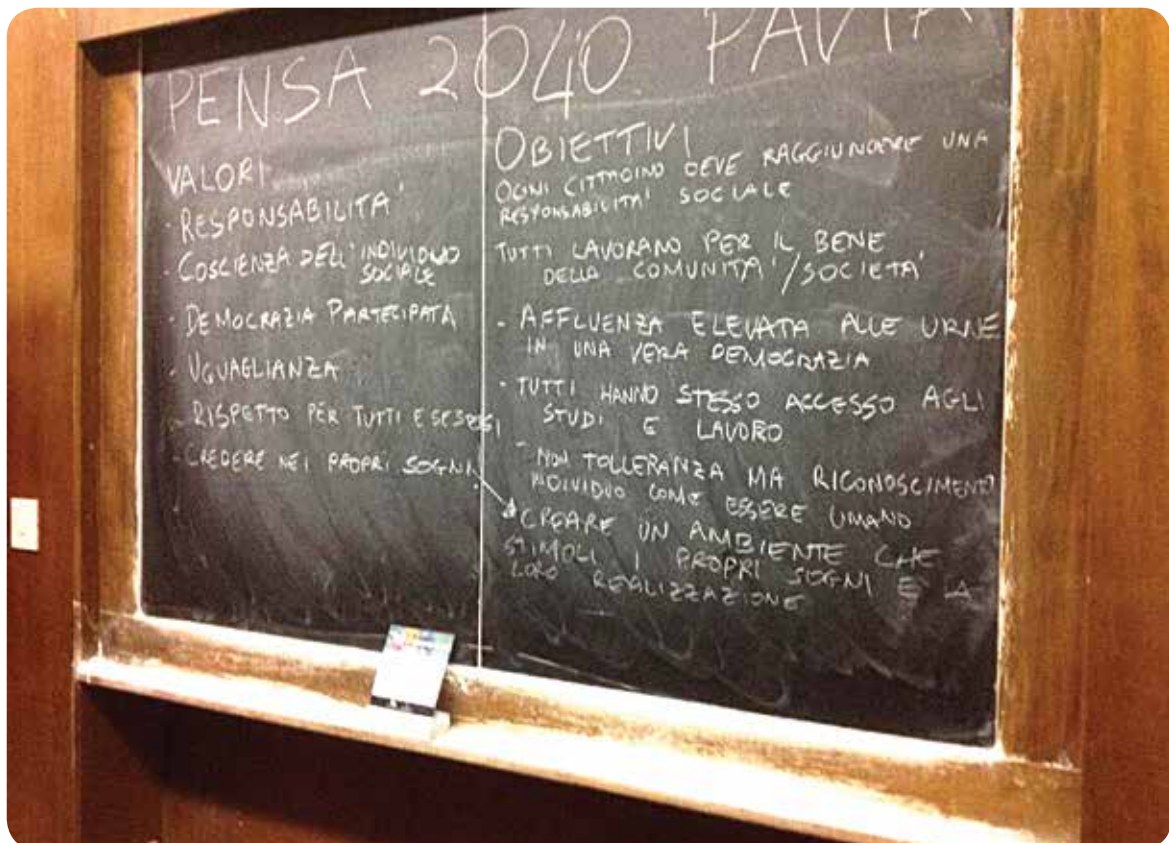 PENSA 2040 PAVIA
VALORI
- RESPONSABILITA'
- COSCIENZA DELL'INDIVIDUO
SOCIALE
- DEMOCRAZIA PARTECIPATA
- UGUAGLIANZA
- RISPETTO PER TUTTI E SESTESSI
- CREDERE NEI PROPRI SOGNI
OBIETTIVI
OGNI CITTADINO DEVE RAGGIUNGERE UNA
RESPONSABILITA' SOCIALE
TUTTI LAVORANO PER IL BENE
DELLA COMUNITA'/SOCIETA'
- AFFLUENZA ELEVATA ALLE URNE
IN UNA VERA DEMOCRAZIA
- TUTTI HANNO STESSO ACCESSO AGLI
STUDI E LAVORO
- NON TOLLERANZA MA RICONOSCIMENTO
INDIVIDUO COME ESSERE UMANO
CREARE UN AMBIENTE CHE
STIMOLI I PROPRI SOGNI E LA
LORO REALIZZAZIONE